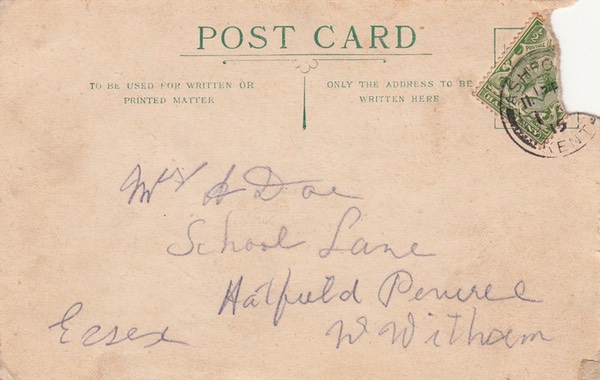 POST CARD
TO BE USED FOR WRITTEN OR
PRINTED MATTER
ONLY THE ADDRESS TO BE
WRITTEN HERE
Mrs A Doe
School Lane
Hatfield Peverel
W Witham
Essex